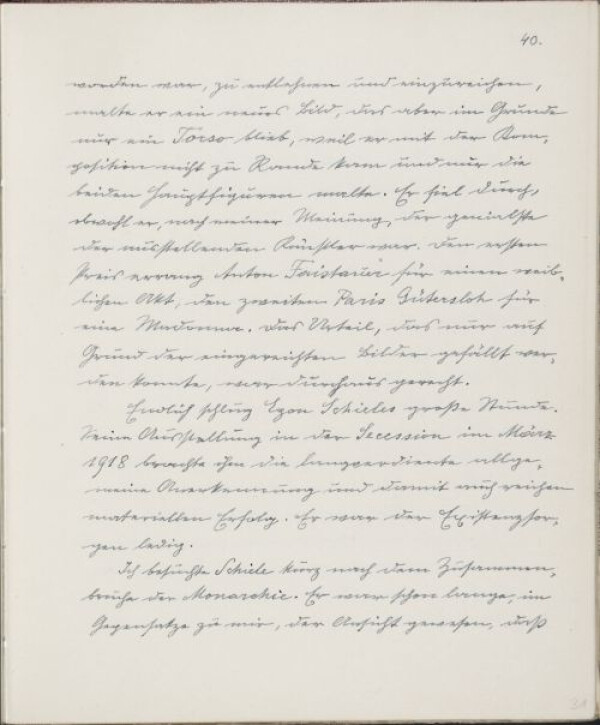 40.
worden war, zu entlehnen und einzureichen,
malte er ein neues Bild, das aber im Grunde
nur ein Torso blieb, weil er mit der Kom-
position nicht zu Rande kam und nur die
beiden Hauptfiguren malte. Er fiel durch,
obwohl er, nach meiner Meinung, der genialste
der ausstellenden Künstler war. Den ersten
Preis errang Anton Faistauer für einen weib-
lichen Akt, den zweiten Paris Gütersloh für
eine Madonna. Das Urteil, das nur auf
Grund der eingereichten Bilder gefällt wer-
den konnte, war durchaus gerecht.
Endlich schlug Egon Schieles große Stunde.
Seine Ausstellung in der Secession im März
1918 brachte ihm die langverdiente allge-
meine Anerkennung und damit auch reichen
materiellen Erfolg. Er war der Existenzsor-
gen ledig.
Ich besuchte Schiele kurz nach dem Zusammen-
bruche der Monarchie. Er war schon lange, im
Gegensatze zu mir, der Ansicht gewesen, daß
31